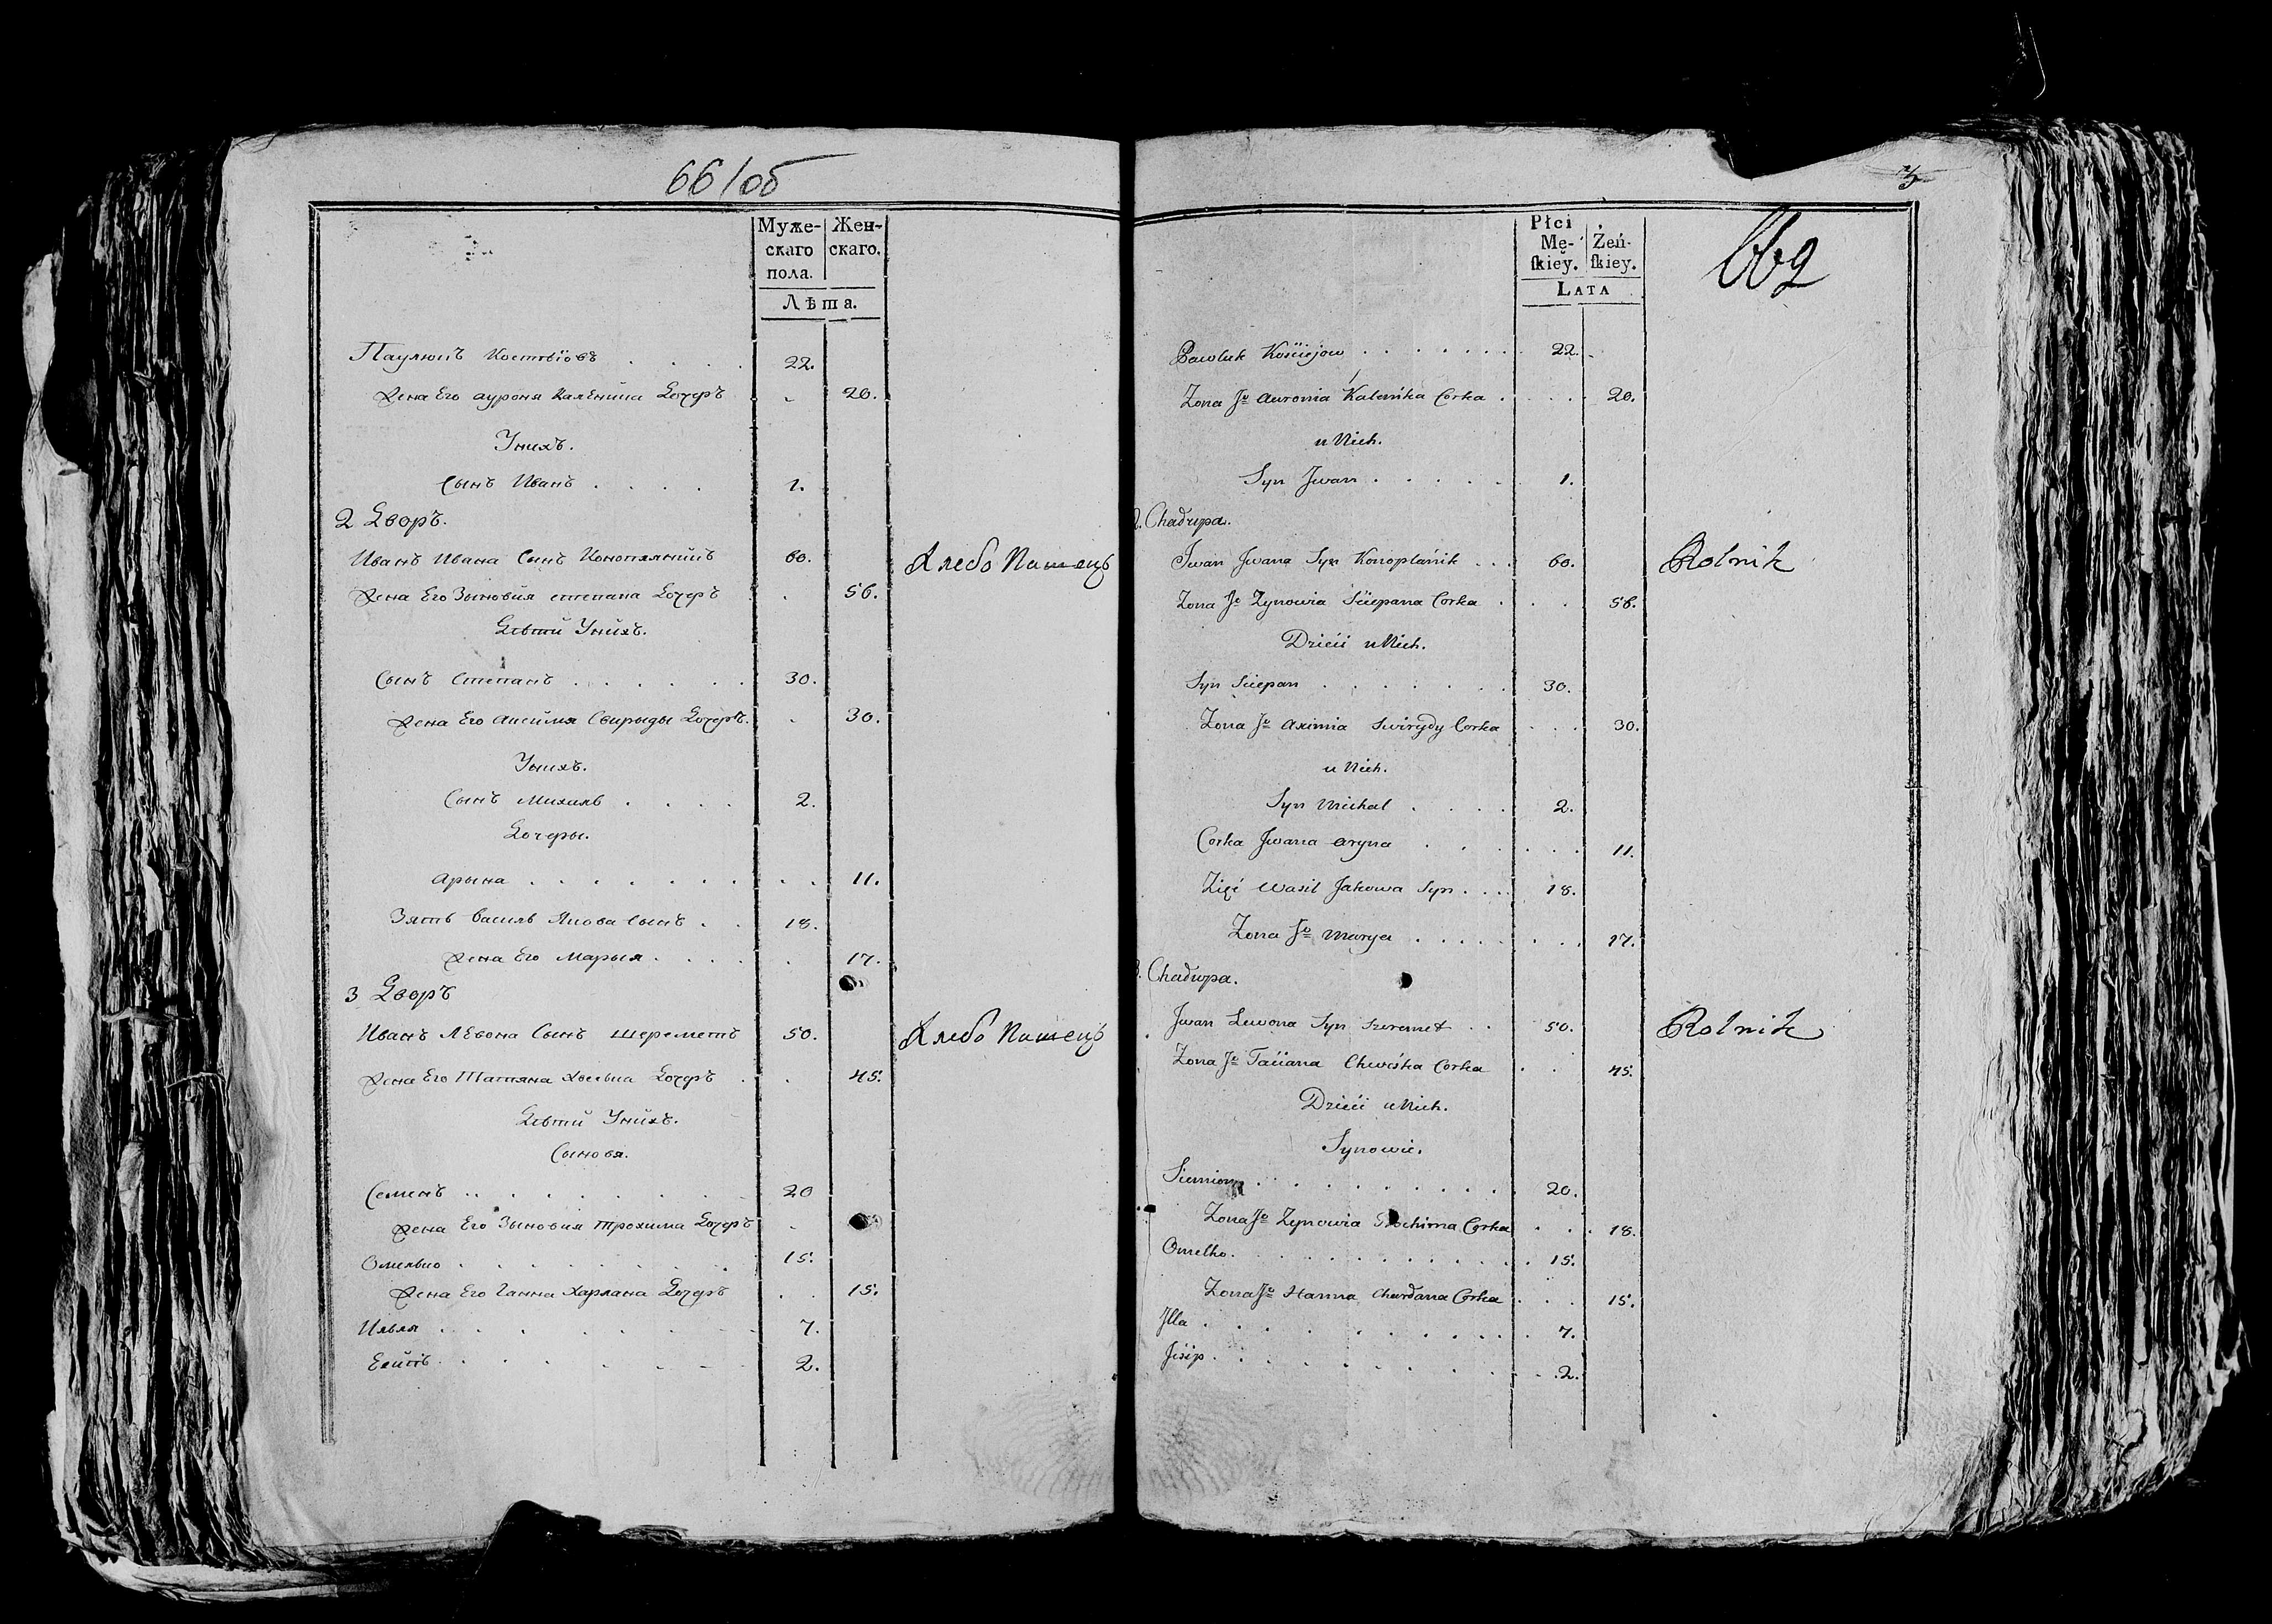 66/об
Муже-
скаго
пола.
Жен-
скаго.
Лѣта.
Паулюкъ Костѣіовъ . . . . 22.
Жена Его Ауроня Калѣника Дочеръ . 20.
Унихъ.
Сынъ Иванъ . . . . 1.
2 Дворъ.
Иванъ Ивана Сынъ Коноплянйкъ 60. Хлебо Пашецъ
Жена Его Зыновия степана Дочеръ . 56.
Дѣтй Унйхъ.
Сынъ Степанъ . . . . . . 30.
Жена Его Аксймя Свирыды Дочеръ. . 30.
Унихъ.
Сынъ Михаль . . . . 2.
Дочеры.
Арына . . . . . . . . . 11.
Зять Василь Якова Сынъ . . 18.
Жена Его Марыя . . . . . 17.
3 Дворъ
Иванъ Лѣвона Сынъ Шереметъ 50. Хлебо Пашецъ
Жена Его Татяна Хвеська Дочеръ . . 45.
Дѣтй Унйхъ.
Сыновя.
Семенъ . . . . . . . . 20
Жена Его Зыновия Трохима Дочеръ .
Омелько . . . . . . . . 15.
Жена Его Ганна Харлана Дочеръ . . 15.
Илья . . . . . . . 7.
Есйпъ . . . . . . . 2.
Płci
Mę-
skiey.
Żeń-
skiey.
LATA
669
Pawluk Kościejow . . . . . . . 22.
Zona Jo Auronia Kalenika Corka . . . . 20.
u Nich.
Syn Jwan . . . . . 1.
2. Chadupa.
Jwan Jwana Syn Konoplanik . . . 60. Rolnik
Zona Jo Zynowia Sciepana Corka . . . 56.
Dzieci u Nich.
Syn Sciepan . . . . . . . 30.
Zona Jo Aximia Swirydy Corka . . . 30.
u Nich.
Syn Michal . . . . 2.
Corka Jwana Aryna . . . . . . 11.
Zięć Wasil Jakowa Syn . . . . 18.
Zona Jo Marya . . . . . . . 17.
3. Chadupa.
Jwan Lewona Syn Szeremet . . 50. Rolnik
Zona Jo Taciana Chweśka Corka . . 45.
Dzieci u Nich.
Synowie.
Siemion . . . . . . . . . . 20.
Zona Jo Zynowia Trochima Corka . . . 18.
Omelko . . . . . . . . . . . 15.
Zona Jo Hanna Charłana Corka . . . 15.
Jlla . . . . . . . . . . . 7.
Jesip . . . . . . . . . . . 2.